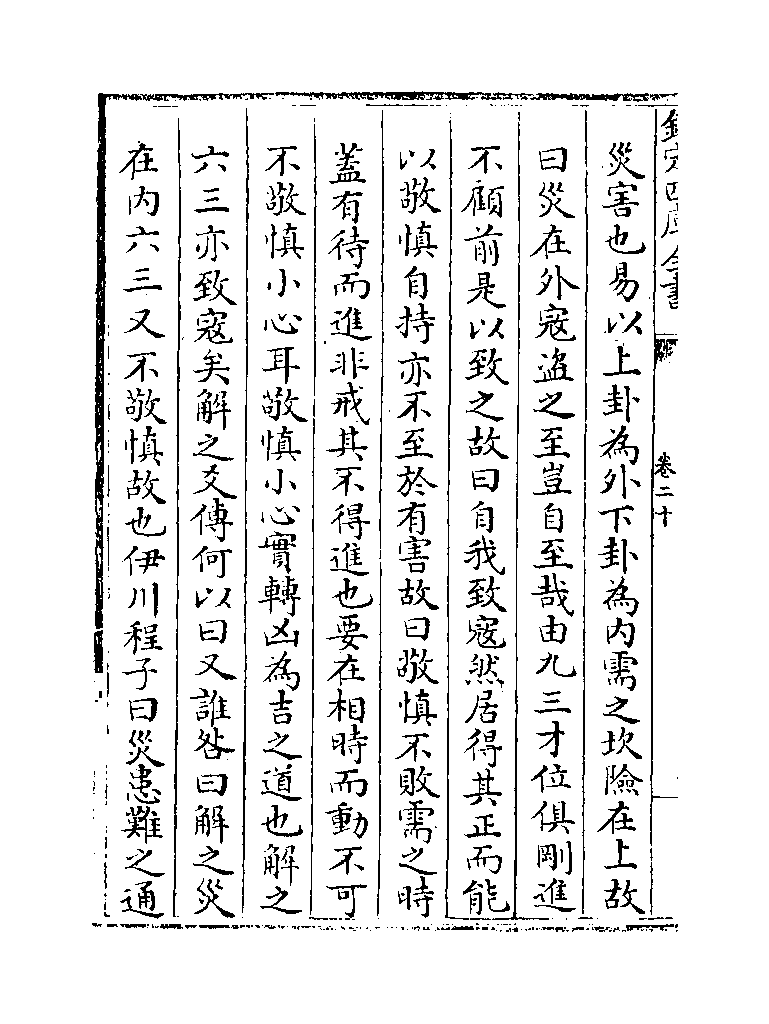 欽定四庫全書
卷二十
災害也易以上卦為外下卦為内需之坎險在上故
曰災在外寇盗之至豈自至哉由九三才位俱剛進
不顧前是以致之故曰自我致寇然居得其正而能
以敬慎自持亦不至於有害故曰敬慎不敗需之時
葢有待而進非戒其不得進也要在相時而動不可
不敬慎小心耳敬慎小心實轉凶為吉之道也解之
六三亦致寇矣解之爻傳何以曰又誰咎曰解之災
在内六三又不敬慎故也伊川程子曰災患難之通